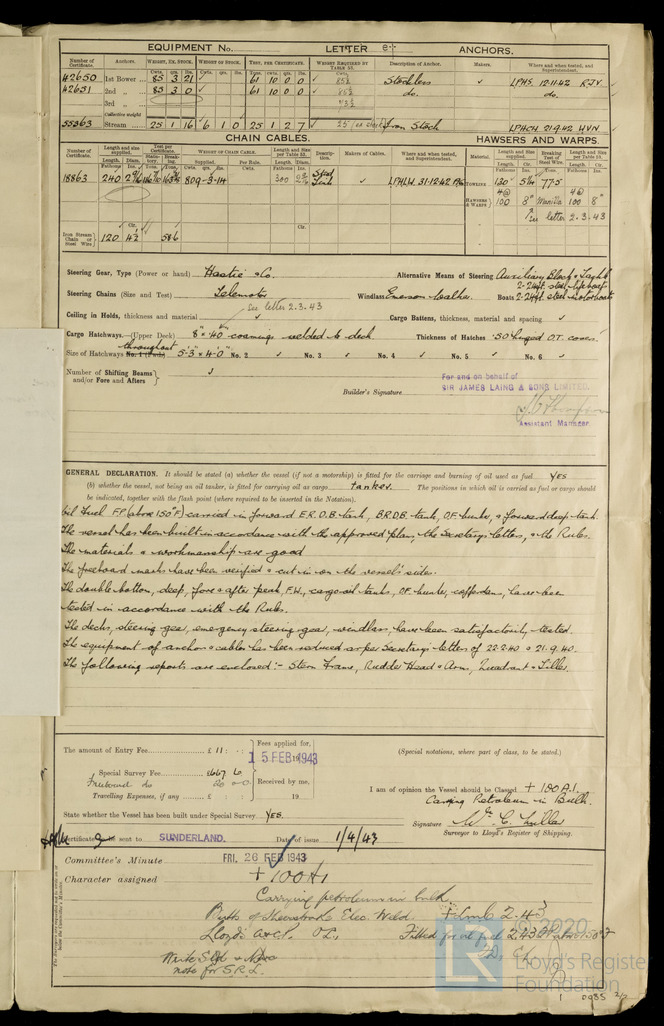 EQUIPMENT No. LETTER et ANCHORS.
Number of Certificate. Anchors. WEIGHT, EX. STOCK. WEIGHT OF STOCK. TEST, PER CERTIFICATE. WEIGHT REQUIRED BY TABLE 53. Description of Anchor. Makers. Where and when tested, and Superintendent.
Cwts. qrs. lbs. Cwts. qrs. lbs. Tons. cwts. qrs. lbs. Cwts.
42650 1st Bower 85 3 21 ✓ 61 10 0 0 ✓ 85½ Stockless ✓ LPHS. 12.11.42 RJV
42651 2nd „ 85 3 0 ✓ 61 10 0 0 85½ do. do.
3rd „ 73½
Collective weight
55363 Stream 25 1 16 6 1 0 25 1 2 7 25 Iron Stock LPHCH 21.9.42
CHAIN CABLES. HAWSERS AND WARPS.
Number of Certificate. Length and size supplied. Test per Certificate. WEIGHT OF CHAIN CABLE. Length and Size per Table 53. Description. Makers of Cables. Where and when tested, and Superintendent. Material. Length and Size supplied. Breaking Test of Steel Wire. Length and Size per Table 53.
Length. Diam. Statutory. Breaking. Supplied. Per Rule. Length. Diam. Length. Cir. Length. Cir.
18863 240 809-3-14 300 Stud Link ✓ LPHLW. 31.12.42 TOWLINE 130 5¼ 77.5
HAWSERS & WARPS 4@ 100 8" Manilla 4@ 100 8"
see letter 2.3.43
Iron Stream Chain or Steel Wire 120 4½ 58.6
Steering Gear, Type (Power or hand) Hastie & Co. Alternative Means of Steering Auxiliary Block & Tackle
Steering Chains (Size and Test) Telemotor Windlass Emerson Walker. Boats 2-24ft. steel lifeboats 2-24ft. steel motorboats
see letter 2.3.43
Ceiling in Holds, thickness and material ✓ Cargo Battens, thickness, material and spacing ✓
Cargo Hatchways.—(Upper Deck) 8" x .40" coamings welded to deck Thickness of Hatches .50 hinged O.T. covers.
throughout
Size of Hatchways No. 1 (Fwd.) 5'-3" x 4'-0" No. 2 ✓ No. 3 ✓ No. 4 ✓ No. 5 ✓ No. 6 ✓
Number of Shifting Beams and/or Fore and Afters ✓
For and on behalf of
Builder's Signature SIR JAMES LAING & SONS LIMITED.
Assistant Manager
GENERAL DECLARATION. It should be stated (a) whether the vessel (if not a motorship) is fitted for the carriage and burning of oil used as fuel YES
(b) whether the vessel, not being an oil tanker, is fitted for carrying oil as cargo tanker. The positions in which oil is carried as fuel or cargo should
be indicated, together with the flash point (where required to be inserted in the Notation).
Oil Fuel F.P. (above 150°F) carried in forward E.R.D.B. tank, B.R.D.B. tank, O.F. bunker, & forward deep tank.
The vessel has been built in accordance with the approved plans, the Secretary's letters, & the Rules.
The materials & workmanship are good
The freeboard marks have been verified & cut in on the vessel's sides.
The double bottom, deep, fore & after peak, F.W., cargo oil tanks, O.F. bunker, cofferdams, have been
tested in accordance with the Rules.
The decks, steering gear, emergency steering gear, windlass, have been satisfactorily tested.
The equipment of anchors & cables has been reduced as per Secretary's letters of 22.2.40 & 21.9.40.
The following reports are enclosed:- Stern Frame, Rudder Head & Arm, Quadrant & Tiller.
The amount of Entry Fee £ 11 : : Fees applied for, (Special notations, where part of class, to be stated.)
15 FEB 1943
Special Survey Fee £667 6
Freeboard do 20 0 0 Received by me,
Travelling Expenses, if any £ 19
I am of opinion the Vessel should be Classed + 100 A.1.
Carrying Petroleum in Bulk.
State whether the Vessel has been built under Special Survey YES.
Signature Wm. C. Miller
Surveyor to Lloyd's Register of Shipping.
Certificate to be sent to SUNDERLAND. Date of issue 1/4/43
Committee's Minute FRI. 26 FEB 1943
Character assigned + 100 A1
Carrying petroleum in bulk
Butts of Elec. Weld. + LMC 2.43
Lloyds A&CP. O.L. Fitted for oil fuel 2.43 F.P. above 150°F
C.L.
Write S.R.L.
note for S.R.L.
© 2020
LR
Lloyd's Register
Foundation